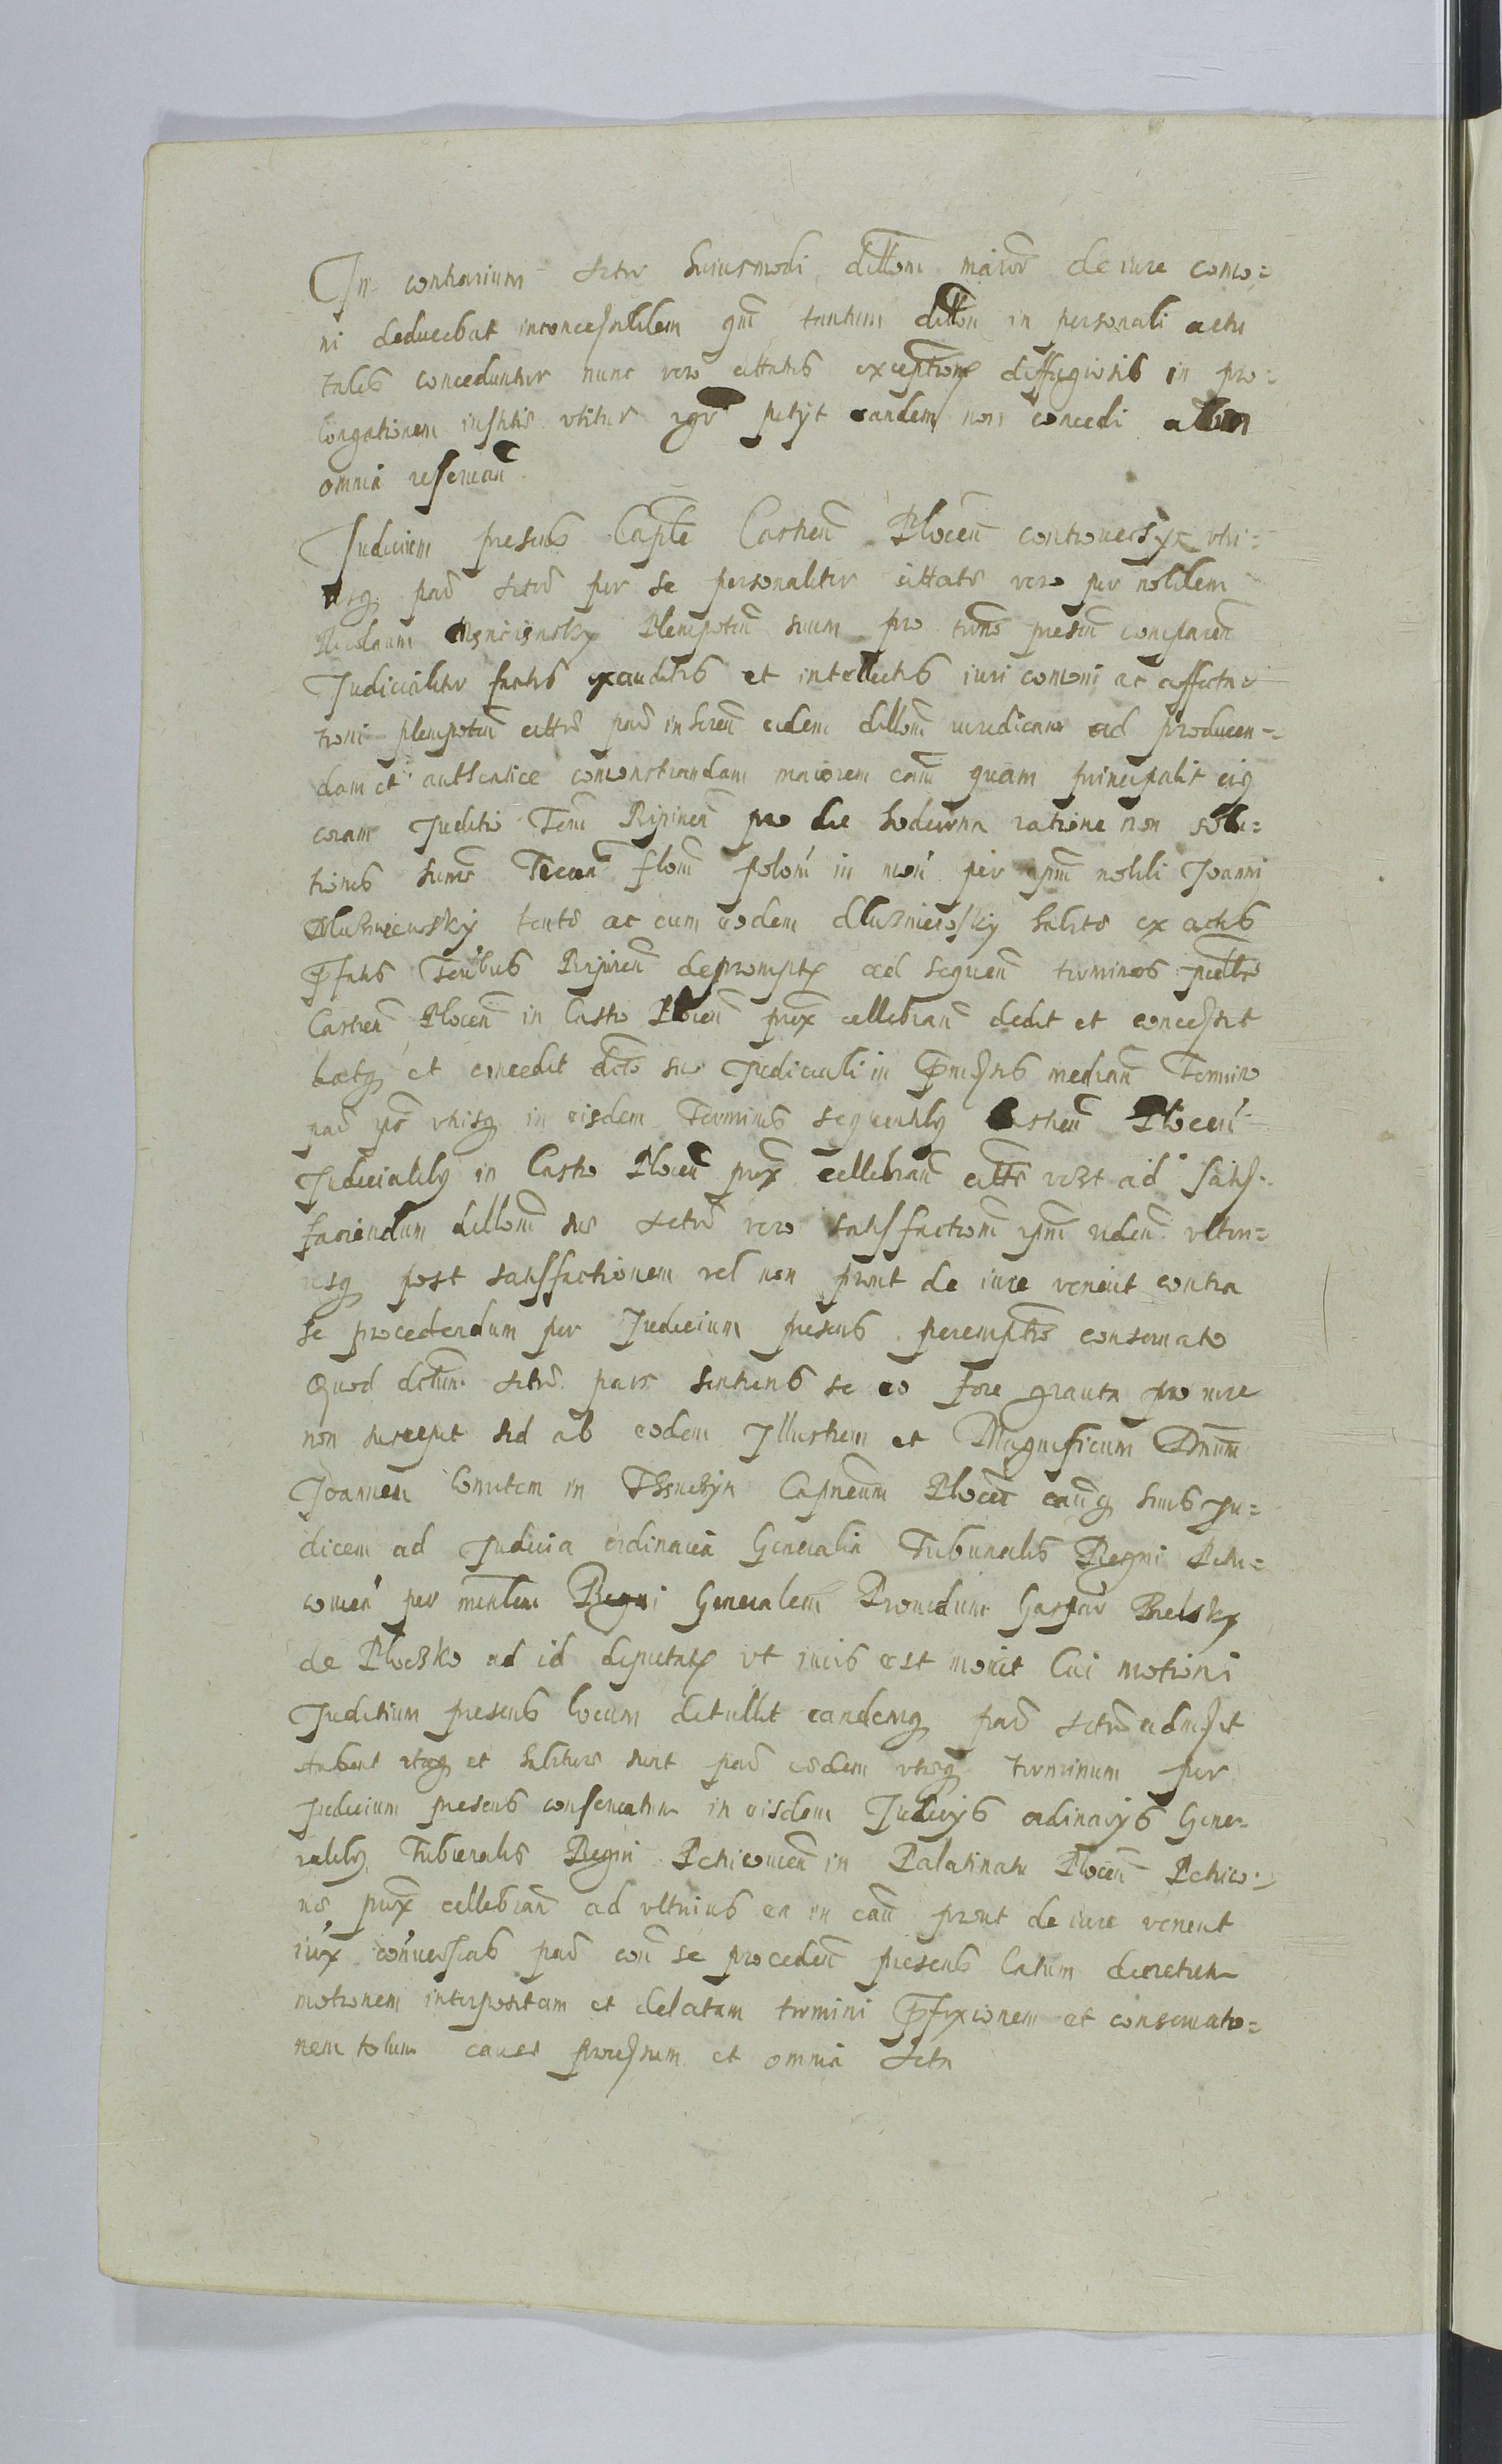 In contrarium Actor huiusmodi dillōm maiorē de iure como=
ni deducebat inconcessibilem qm̄ tantum dillōn in personali actu
talis conceduntur nunc vero cittatus exceptionę diffugiosis in pro=
longationem iustitię vtitur igr petyt eandem non concedi alias
omnia reseruan̄
Judicium presens Capłe Castren̄ Plocen̄ controuersys vtri=
usq partī Actorē per se personaliter cittate vero per nobilem
Nicolaum plenipoten̄ suum pro tunc presen̄ comparen̄
Judicialiter factis exauditis et intellectis iuri comōni ac affecta
tioni plenipoten̄ cittē partis inheren̄ eidem dillōm iuridicam ad producen=
dam et autentice comonstrandam maiorem cām quam principalis eiq
coram Juditio Terrī Ripinen̄ pro die hodierna ratione non solu=
tionis sumē Tecen̄ florē poloń in moń per ipm̄ nobili Joanni
Dluzniewsky tentē ac cum eodem dluzniewsky habitē ex actis
pfatis Terribus Rypinen̄ depromptę ad sequen̄ terminos
Castren̄ Plocen̄ in Castro Plocen̄ prox cellebran̄ dedit et concessit
datq et concedit dcto suo Judiciali in pmissis median̄ Termino
partī vtrisq in eisdem Terminis sequentibq Castren̄ Plocen̄
Judicialibq in Castro Plocen̄ prox cellebran̄ cittē ad satis=
faciendum dillōm sue Actorē vero satisfactionē ipm̄ viden̄ vlteri=
usq post satisfactionem vel non prout de iure venerit contra
se procedendum per Judicium presens peremptē conseruato
Quod dctum Actorē pars sentiens se eo fore grauata pro iure
non suscepit sed ab eodem Illustrem et Magnificum Dnūm
Joannem Comitem in Thenczyn Capneum Plocen̄ eiusq Ju=
dicem ad Judicia ordinaria Generalia Tribunalis Regni Petri=
couień per ministēm Regni Generalem Prouidum Gaspar Bielsky
de Ploczko ad id deputatę vt iuris est mouit Cui motioni
Juditium presens locum detullit eandemq partī Actorē admisit
Habent itaq et habiturę sunt partī eedem vtręq terminum per
Judicium presens conseruatum in eisdem Judicys ordinarys Gene=
ralibq Tribunalis Regni Petricouien̄ in Palatinatu Plocen̄ Petrico=
uię prox cellebran̄ ad vlterius ea in cau prout de iure venerit
iux cońuersias partī coń se proceden̄ presens latum decretum
motionem interpositam et delatam termini pfixionem et conseruatio=
nem totum cause processum et omnia Acta